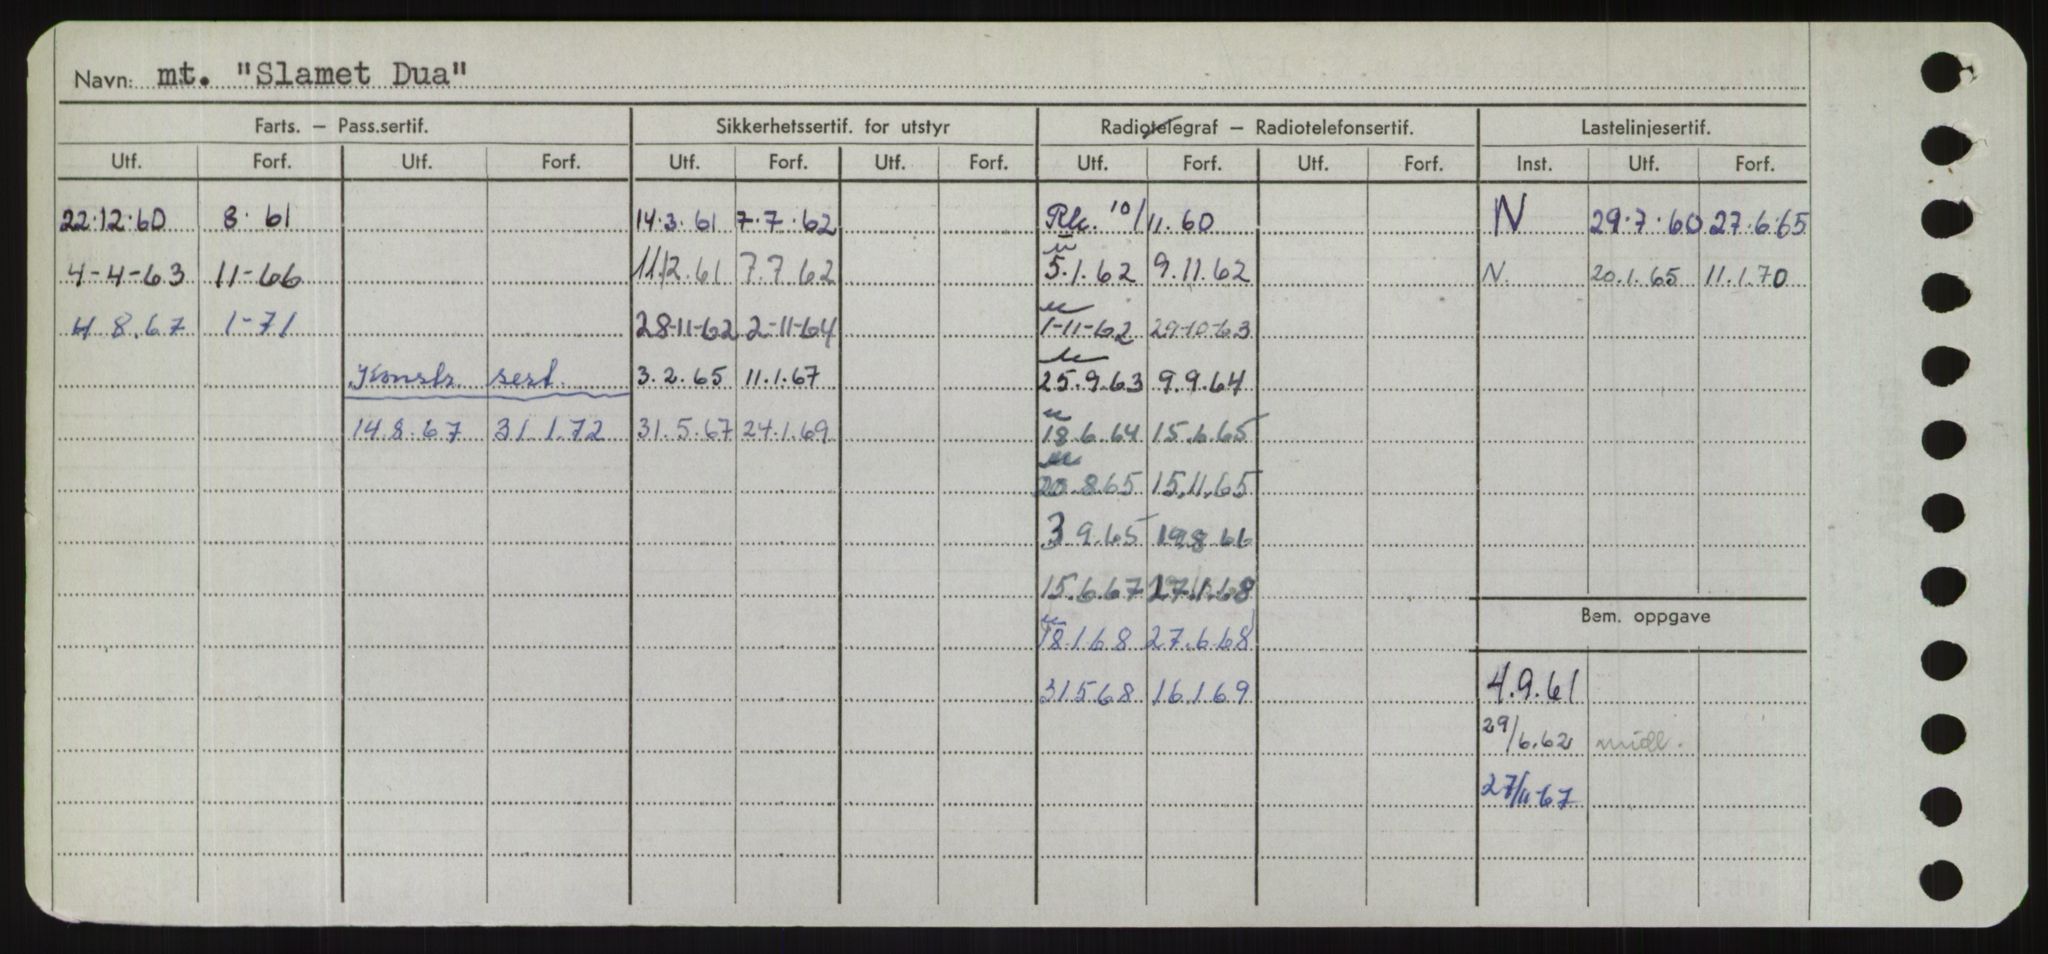 Navn: mt. "Slamet Dua"
Farts. – Pass.sertif. Sikkerhetssertif. for utstyr Radiotelegraf – Radiotelefonsertif. Lastelinjesertif.
Utf. Forf. Utf. Forf. Utf. Forf. Utf. Forf. Utf. Forf. Utf. Forf. Inst. Utf. Forf.
22.12.60 8.61 14.3.61 7.7.62 10/11.60 N 29.7.60 27.6.65
4-4-63 11-66 11.12.61 7.7.62 5.1.62 9.11.62 N. 20.1.65 11.1.70
4.8.67 1-71 28-11-62 2-11-64 1-11-62 29-10-63
Konstr. sert. 3.2.65 11.1.67 25.9.63 9.9.64
14.8.67 31.1.72 31.5.67 24.1.69 18.6.64 15.6.65
20.8.65 15.11.65
3.9.65 19.8.66
15.6.67 27.1.68
Bem. oppgave
18.1.68 27.6.68
31.5.68 16.1.69 4.9.61
29/6.62 midl.
27/11-67